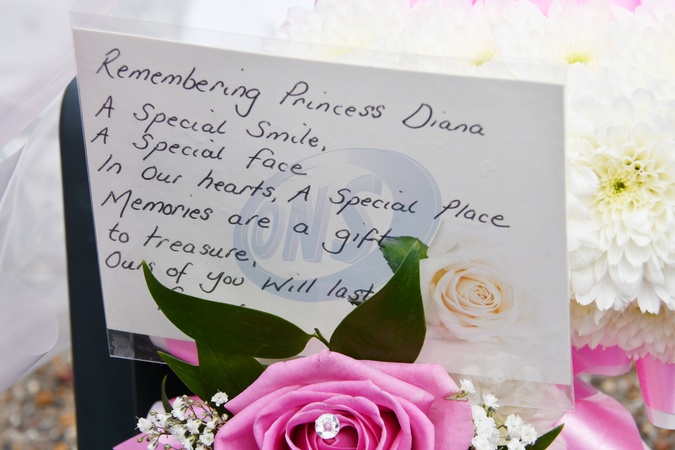 Remembering Princess Diana
A Special Smile,
A Special face
In Our hearts, A Special Place
Memories are a gift
to treasure,
Ours of you will last
ONS